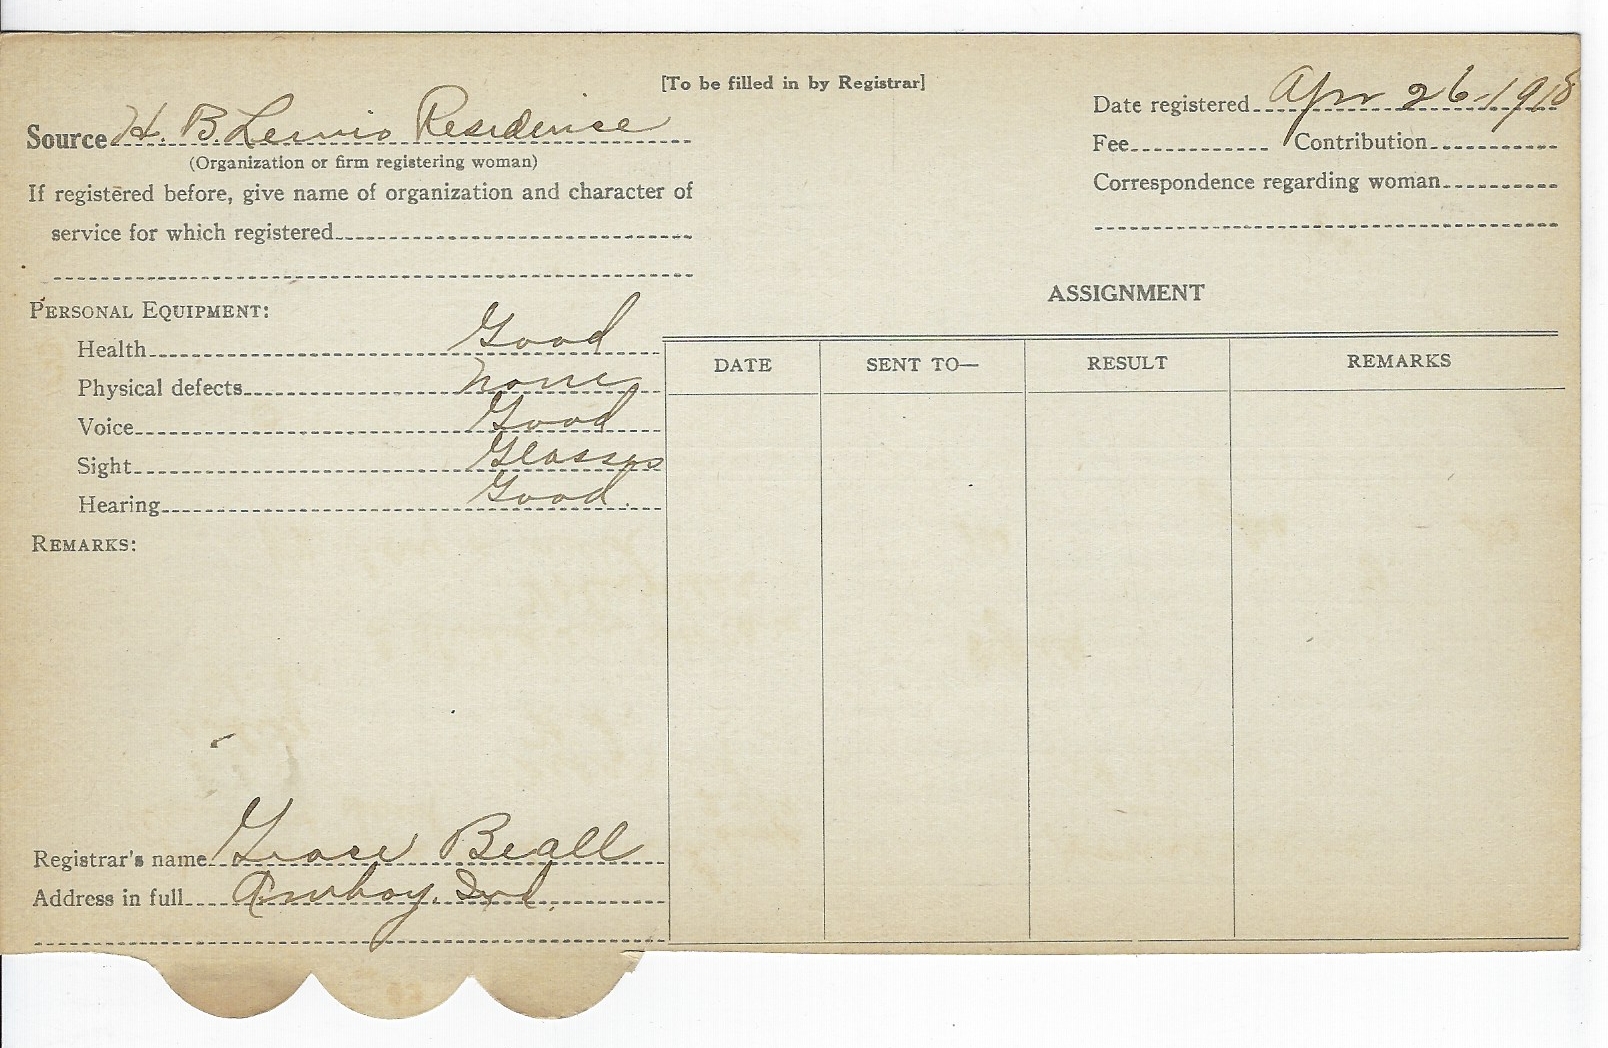 [To be filled in by Registrar]
Source H. B. Lewis Residence
(Organization or firm registering woman)
If registered before, give name of organization and character of
service for which registered
Date registered Apr 26-1918
Fee Contribution
Correspondence regarding woman
PERSONAL EQUIPMENT:
Health Good
Physical defects none
Voice Good
Sight Glasses
Hearing Good.
REMARKS:
Registrar's name Grace Beall
Address in full Amboy. Ind.
ASSIGNMENT
DATE SENT TO— RESULT REMARKS